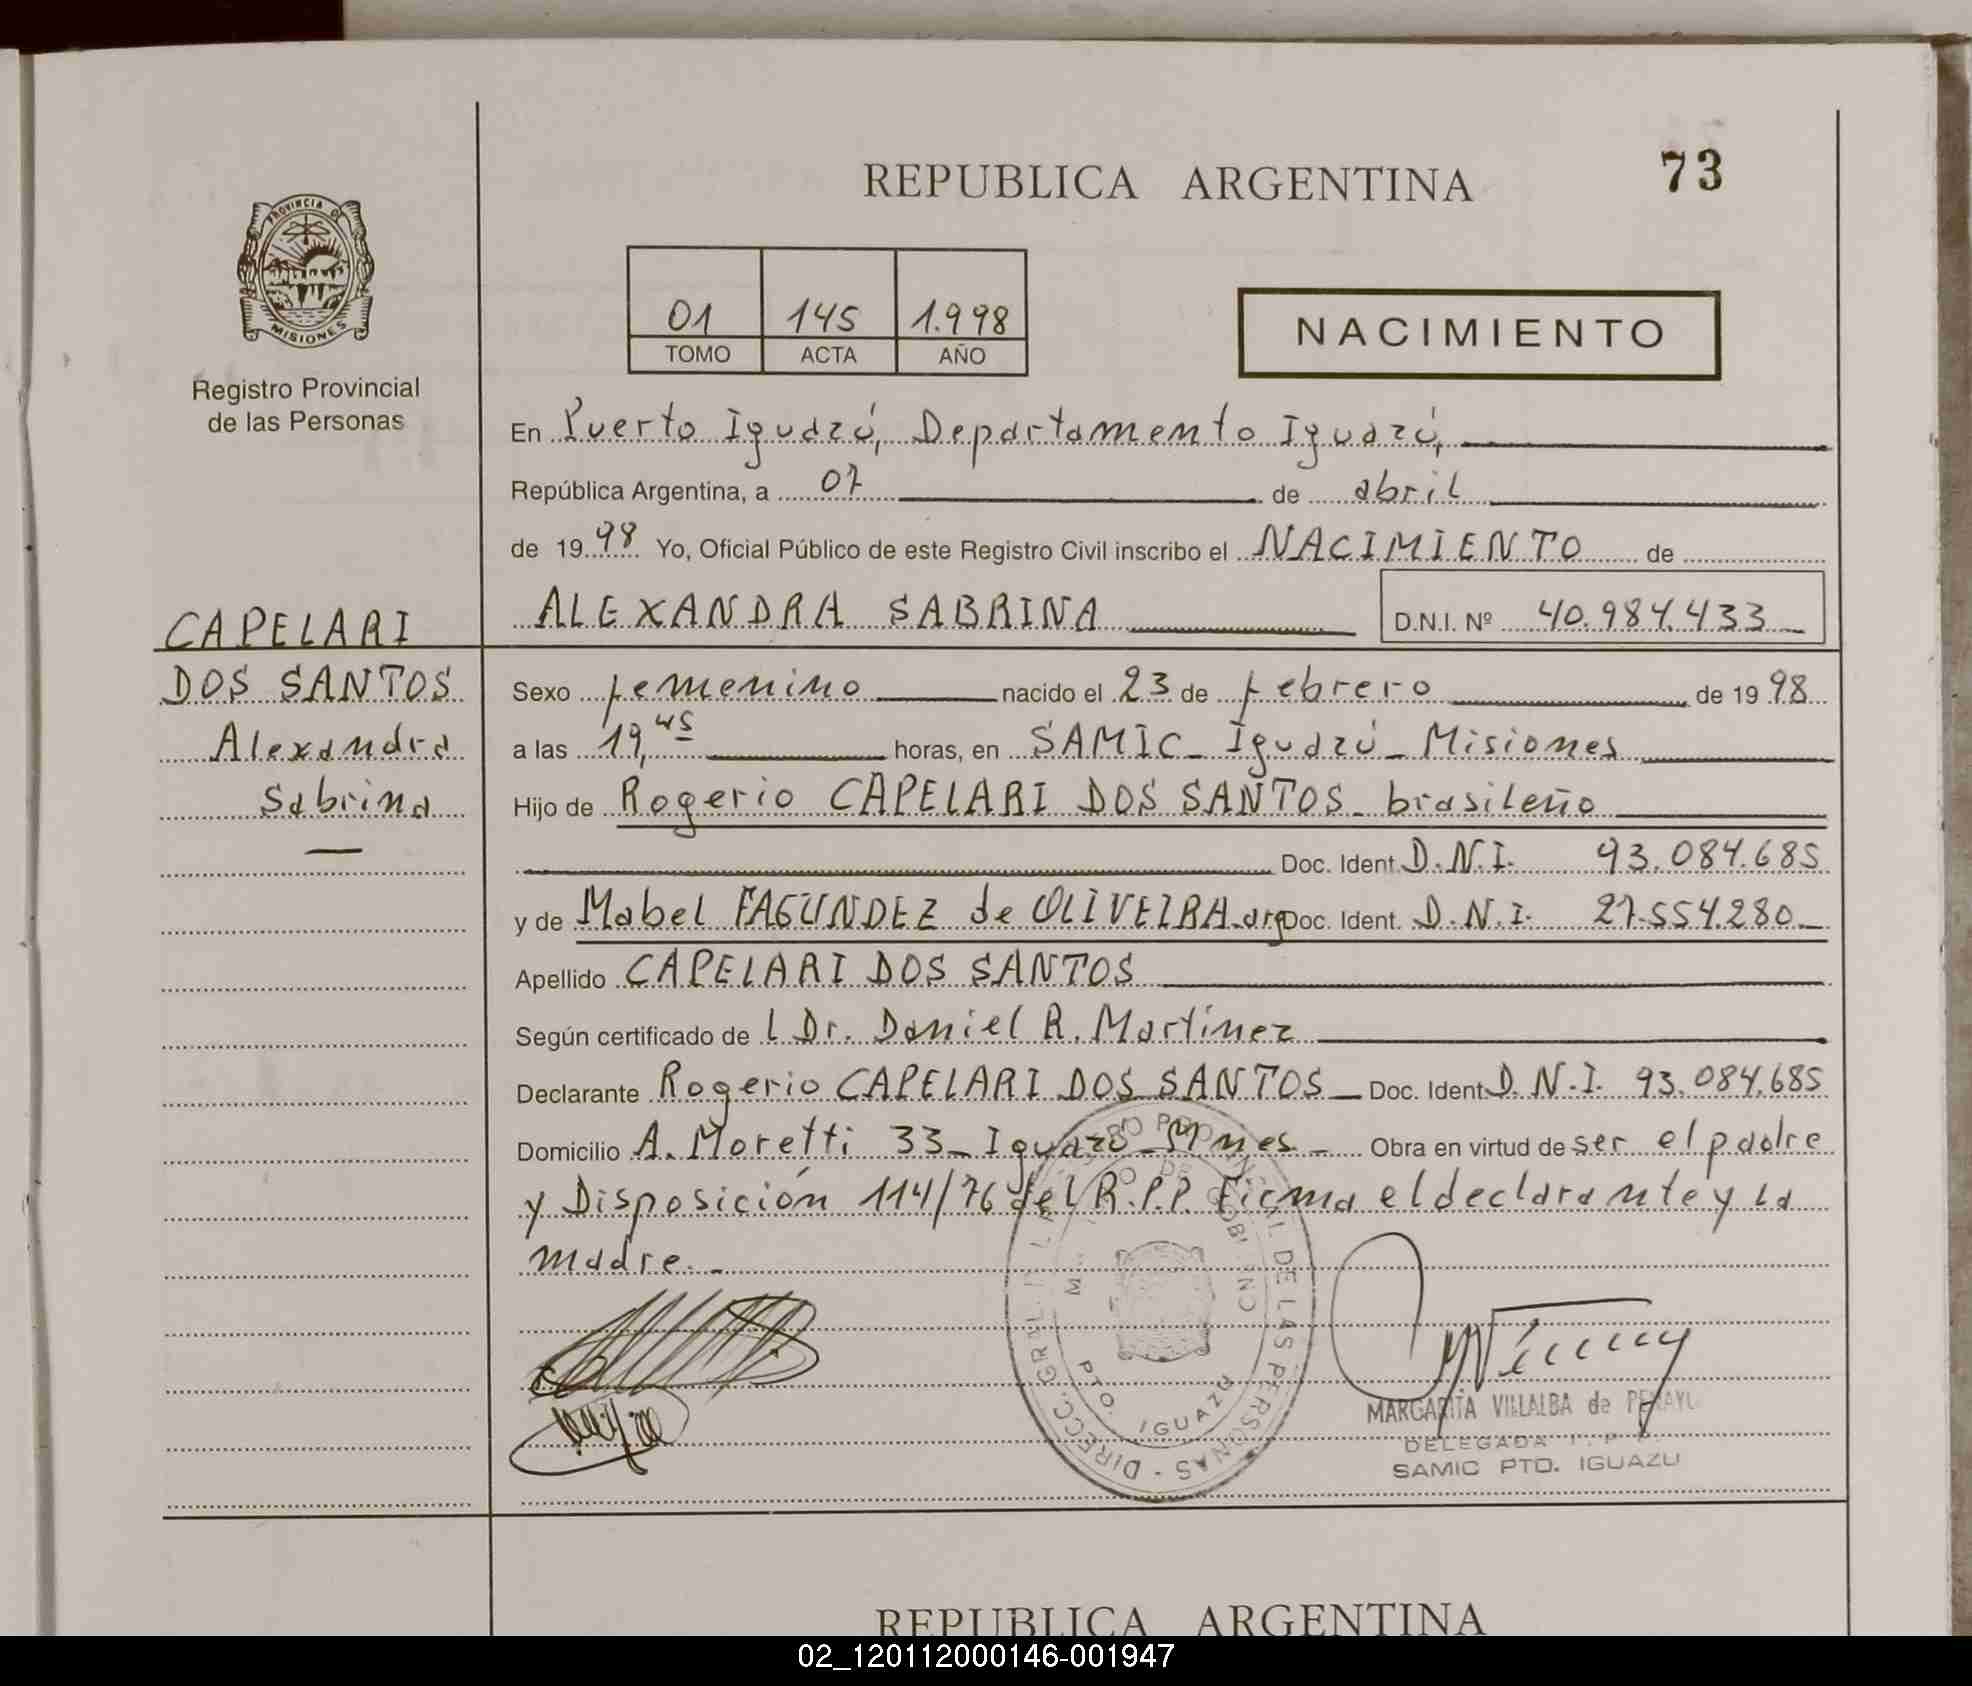 REPUBLICA ARGENTINA
73
PROVINCIA DE
MISIONES
Registro Provincial
de las Personas
01 145 1.998
TOMO ACTA AÑO
NACIMIENTO
En Puerto Iguazú, Departamento Iguazú,
República Argentina, a 07 de abril
de 1998 Yo, Oficial Público de este Registro Civil inscribo el NACIMIENTO de
ALEXANDRA SABRINA D.N.I. Nº 40.984.433
CAPELARI
DOS SANTOS
Alexandra
Sabrina
Sexo femenino nacido el 23 de febrero de 1998
a las 19,45 horas, en SAMIC - Iguazú - Misiones
Hijo de Rogerio CAPELARI DOS SANTOS - brasileño
Doc. Ident. D.N.I. 93.084.685
y de Mabel FAGUNDEZ de OLIVEIRA - arg Doc. Ident. D.N.I. 27.554.280
Apellido CAPELARI DOS SANTOS
Según certificado de l Dr. Daniel R. Martínez
Declarante Rogerio CAPELARI DOS SANTOS - Doc. Ident. D.N.I. 93.084.685
Domicilio A. Moretti 33 - Iguazú - Mnes - Obra en virtud de ser el padre
y Disposición 114/76 del R.P.P. Firma el declarante y la
madre.-
DIRECC. GRAL. DE LAS PERSONAS
PTO. IGUAZU
MARGARITA VILLALBA de
DELEGADA
SAMIC PTO. IGUAZU
REPUBLICA ARGENTINA
02_120112000146-001947